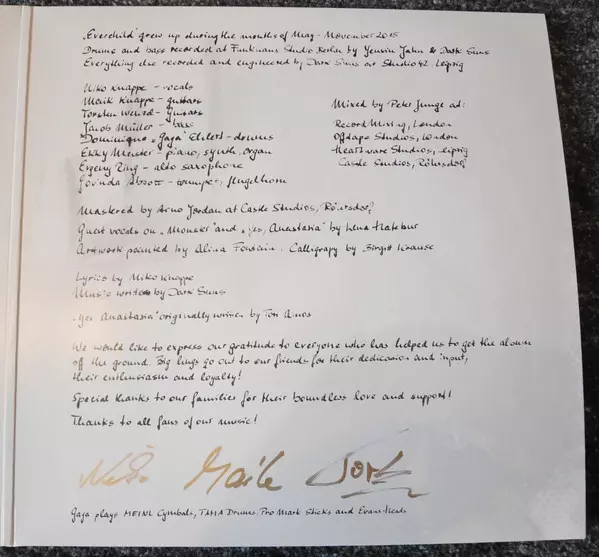 „Everchild" grew up during the months of May - November 2015
Drums and bass recorded at Funkhaus Studio Berlin by Yensin Jahn & Dark Suns
Everything else recorded and engineered by Dark Suns at Studio 42, Leipzig
Niko Knappe - vocals
Maik Knappe - guitars
Torsten Wenzel - guitars
Jacob Müller - bass
Dominique „Gaya" Ehlert - drums
Ekky Meister - piano, synth, organ
Evgeny Ring - alto saxophone
Govinda Abbott - trumpet, flugelhorn
Mixed by Peter Junge at:
Record Mixing, London
Offtape Studios, London
Heartware Studios, Leipzig
Castle Studios, Röhrsdorf
Mastered by Arno Jordan at Castle Studios, Röhrsdorf
Guest vocals on „Monster" and „Yes, Anastasia" by Lena Hatebur
Artwork painted by Alina Fonseca. Calligrapy by Birgit Krause
Lyrics by Niko Knappe
Music written by Dark Suns
„Yes Anastasia" originally written by Tori Amos
We would like to express our gratitude to everyone who has helped us to get the album
off the ground. Big hugs go out to our friends for their dedication and input,
their enthusiasm and loyalty!
Special thanks to our families for their boundless love and support!
Thanks to all fans of our music!
Niko Maik Torsten
Gaya plays MEINL Cymbals, TAMA Drums, Pro Mark Sticks and Evans Heads